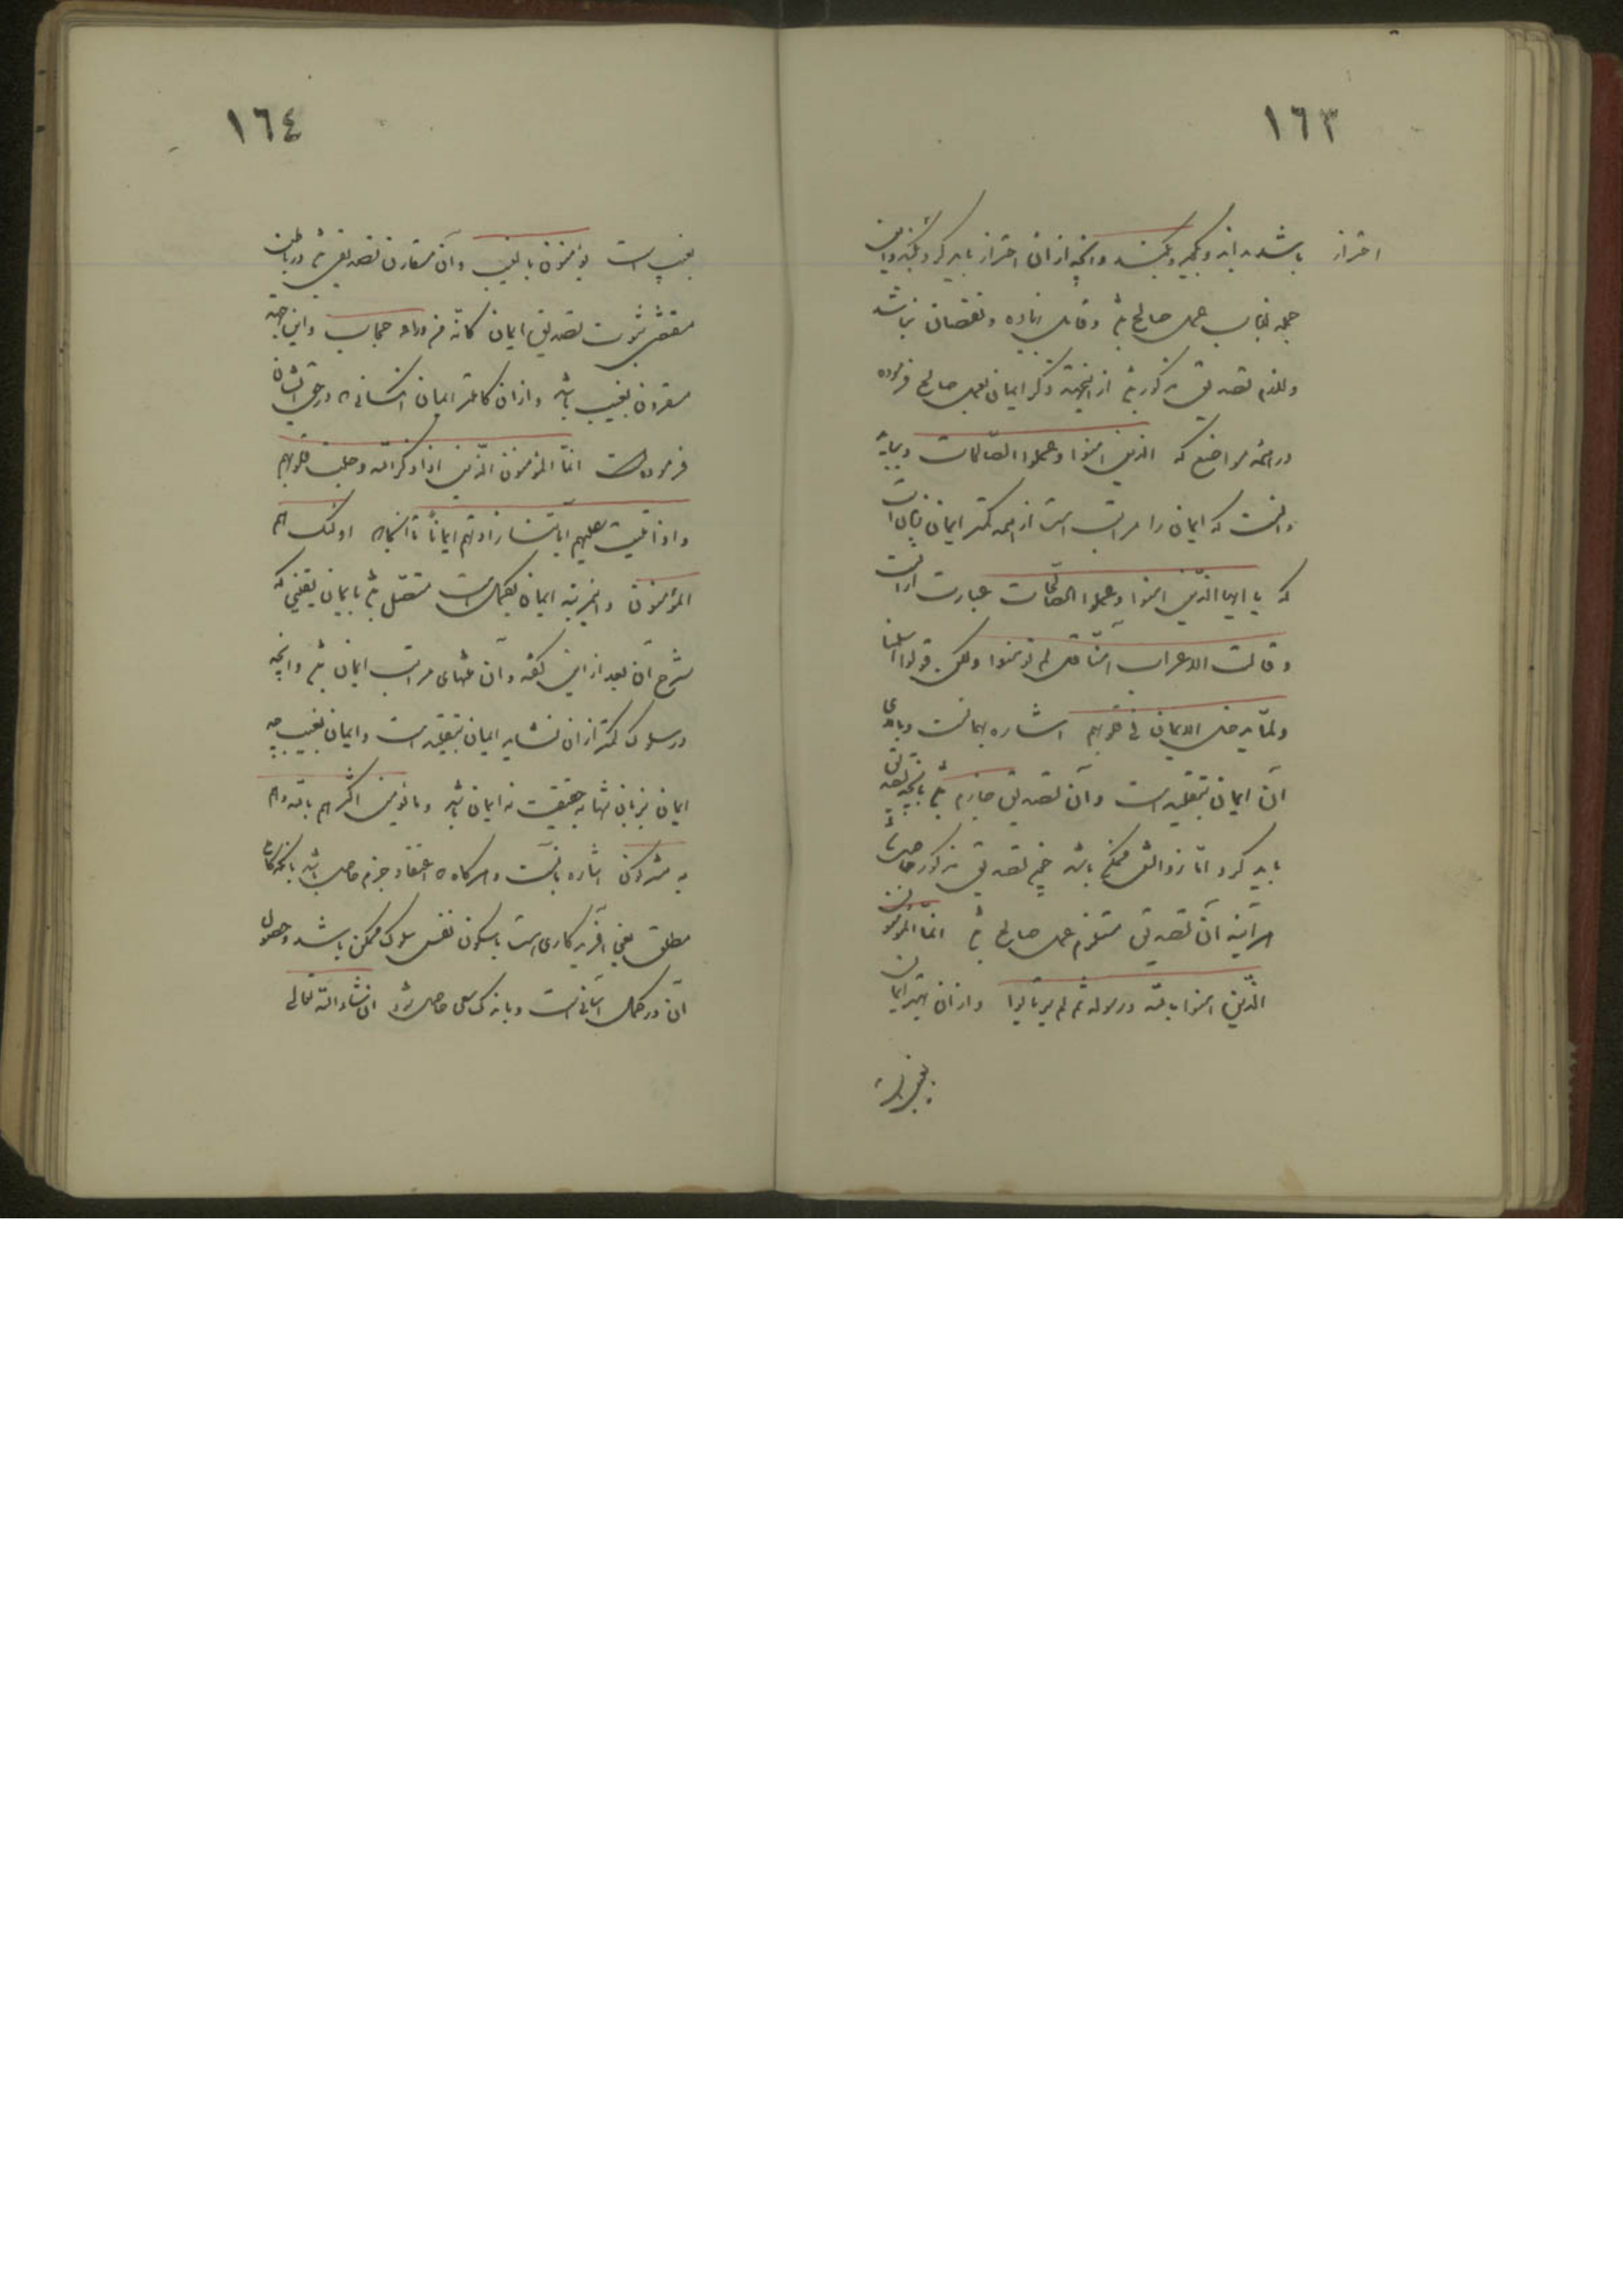 ١٦٣
احتراز باشد بداند و بگوید و بکند و آنچه از آن احتراز باید کرد بکند و این
جمله از باب عمل صالح باشد و قابل زیاده و نقصان نباشد
و لازم تصدیق مذکور باشد از اینجهة ذکر ایمان بعمل صالح فرموده
در همه مواضع که الذین امنوا و عملوا الصالحات و بباید
دانست که ایمان را مراتب است از همه کمتر ایمان بزبان است
که یا ایها الذین امنوا و عملوا الصالحات عبارت از آنست
و قالت الاعراب امنّا قل لم تؤمنوا ولکن قولوا اسلمنا
ولمّا یدخل الایمان فی قلوبهم اشاره بهمانست و بالای
آن ایمان بتقلید است و آن تصدیق جازم باشد بآنچه تصدیق
باید کرد امّا زوالش ممکن باشد چه تصدیق مذکور حاصل باشد
هرآینه آن تصدیق مستلزم عمل صالح باشد انما المؤمنون
الذین امنوا بالله ورسوله ثم لم یرتابوا و از آن بهتر ایمان
بغیب است
١٦٤
بغیب است یؤمنون بالغیب و آن مقارن تصدیقی باشد در باطن
مقتضی ثبوت تصدیق ایمان کانّه من وراء حجاب و این جهة
مقرون بغیب باشد و از آن کاملتر ایمان کسانی که در حق ایشان
فرموده است انّما المؤمنون الّذین اذا ذکر الله وجلت قلوبهم
و اذا تلیت علیهم آیاتنا زادتهم ایماناً تا آنجا که اولئک هم
المؤمنون و این مرتبه ایمان بکمال است متصل باشد بایمان یقینی که
شرح آن بعد از این گفته و آن منتهای مراتب ایمان باشد و آنچه
در سلوک کمتر از آن نشاید ایمان بتقلید است و ایمان بغیب چه
ایمان بزبان تنها بحقیقت نه ایمان باشد وما یؤمن اکثرهم بالله الا و هم
مشرکون اشاره بآنست و هرگاه که اعتقاد جزم حاصل باشد بآنکه کامل
مطلق یعنی آفریدگاری است با سکون نفس سلوک ممکن باشد و حصول
آن در کمال آسانی است و باندک سعی حاصل شود ان شاء الله تعالی